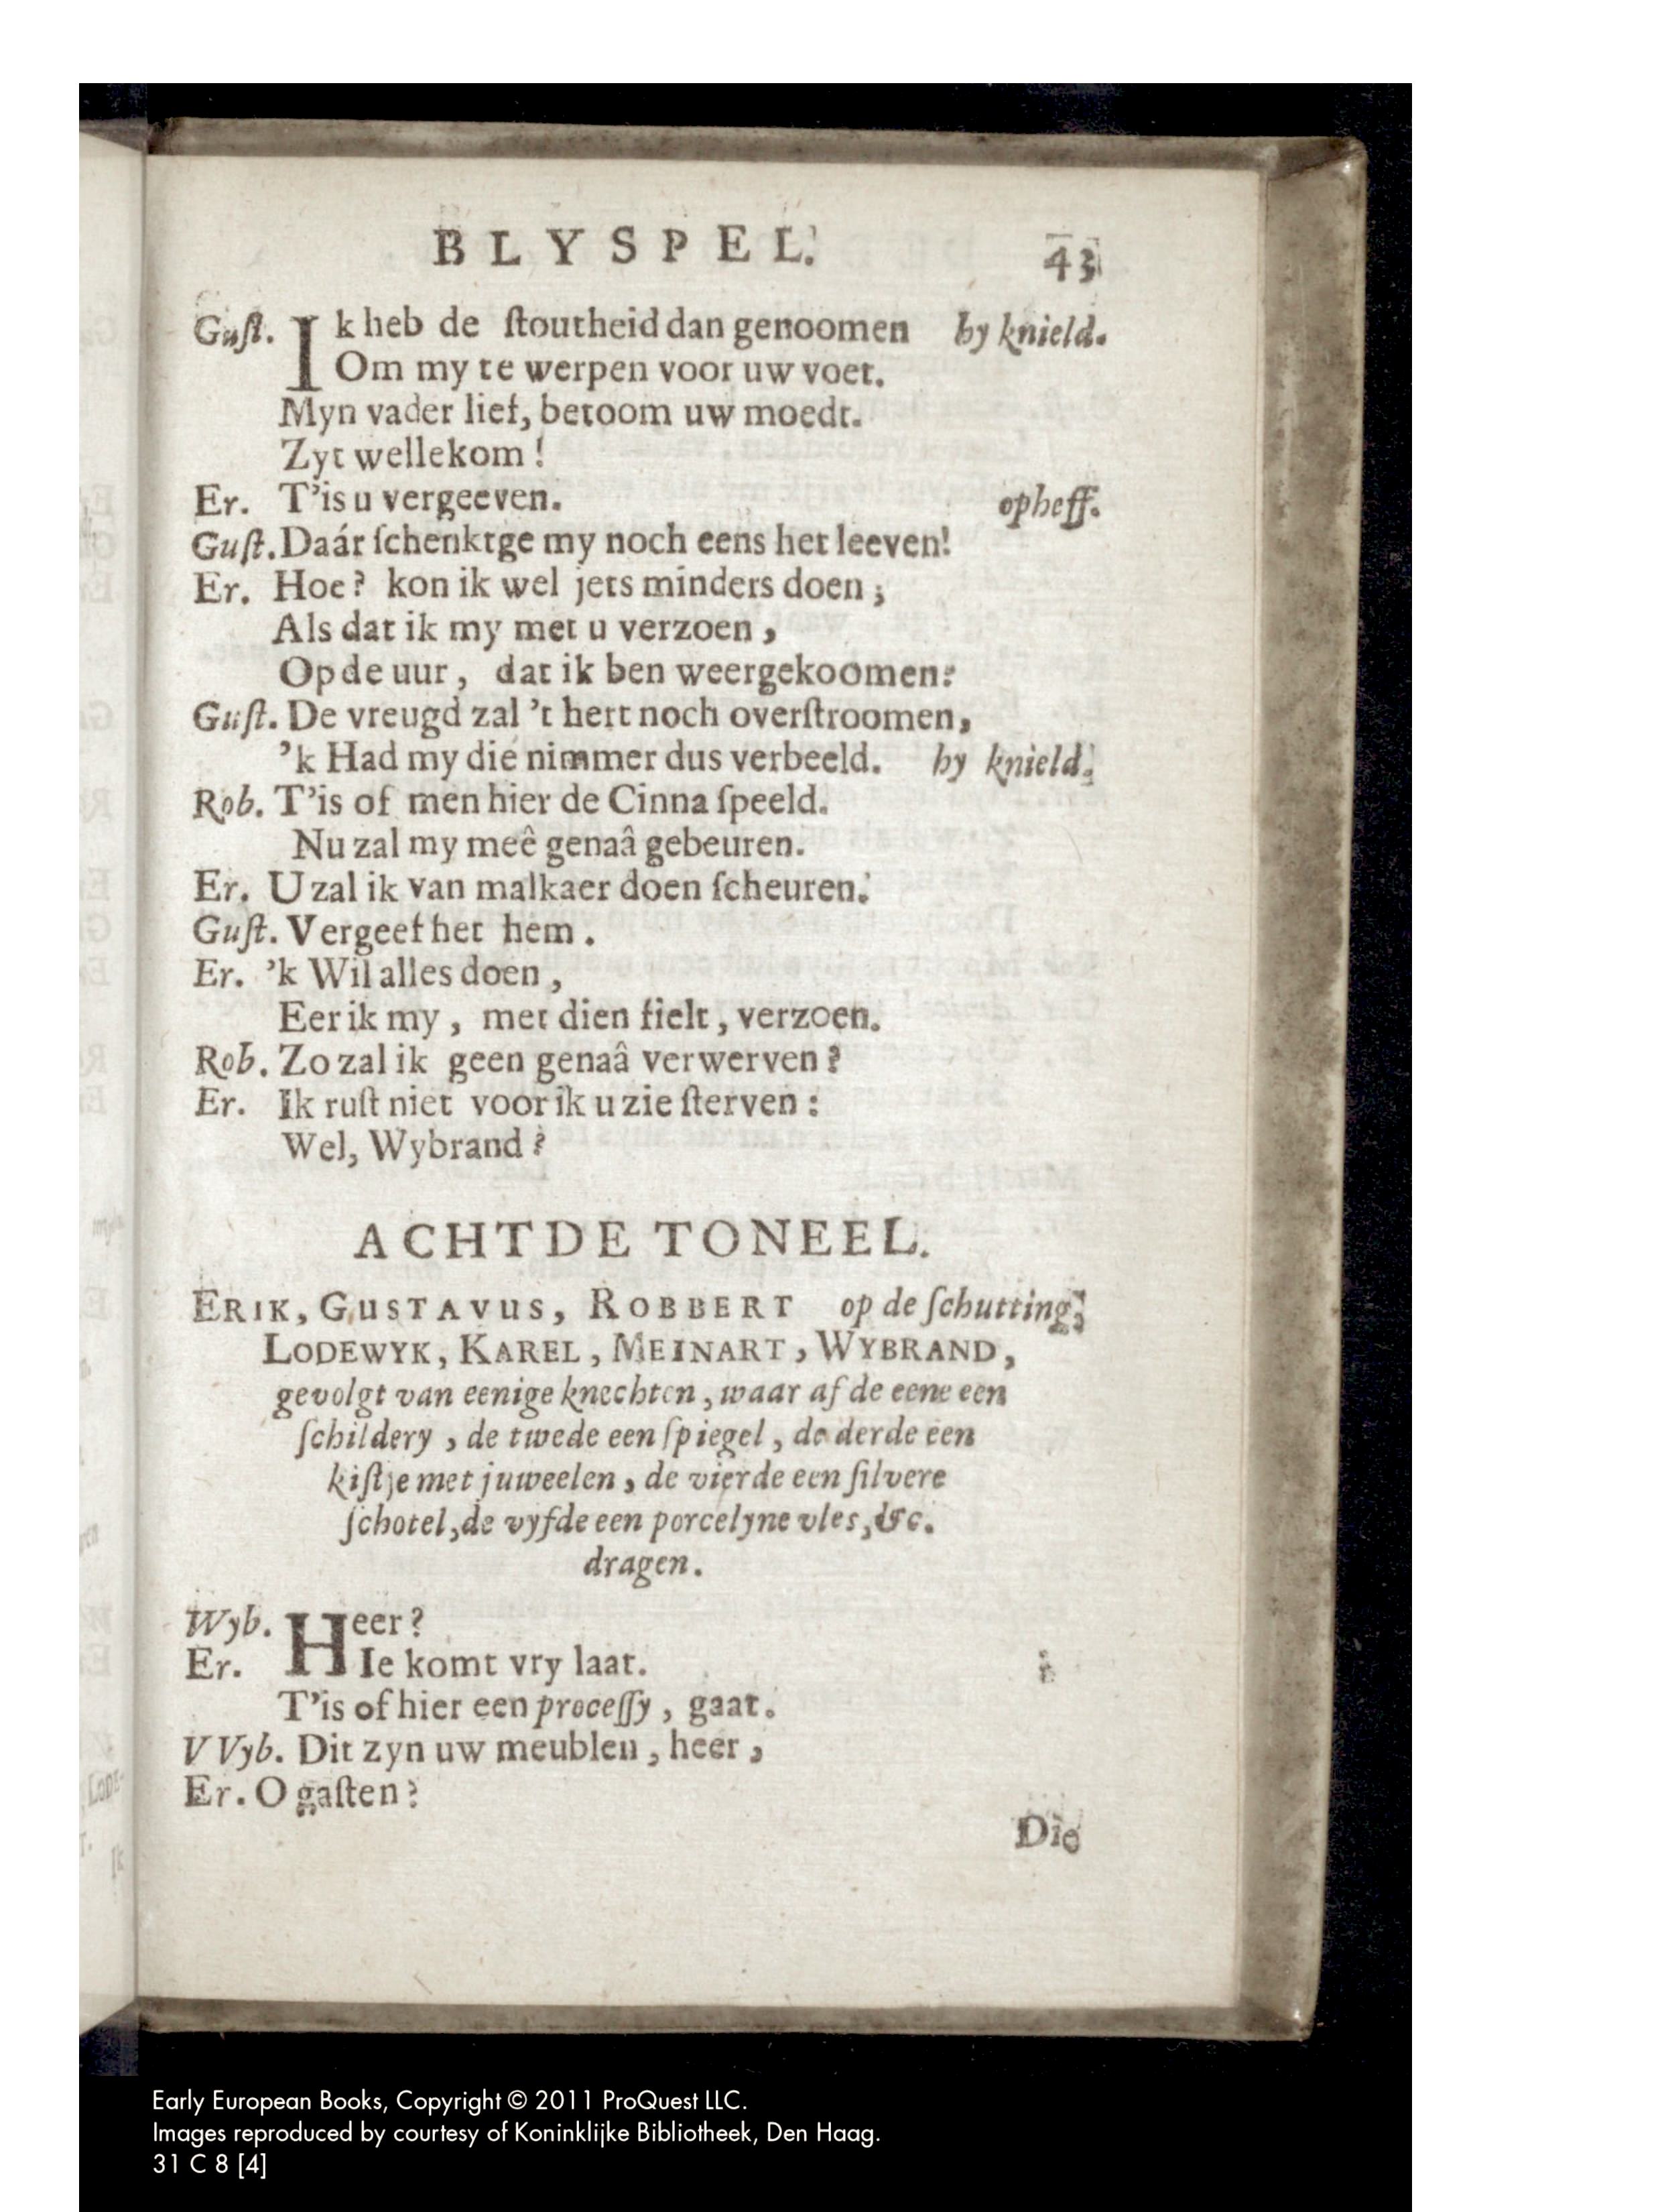 BLYSPEL. 43
Guſt. Ik heb de ſtoutheid dan genoomen hy knield.
Om my te werpen voor uw voet.
Myn vader lief, betoom uw moedt.
Zyt wellekom!
Er. T'is u vergeeven. opheff.
Guſt. Daár ſchenktge my noch eens het leeven!
Er. Hoe? kon ik wel jets minders doen;
Als dat ik my met u verzoen,
Op de uur, dat ik ben weergekoomen:
Guſt. De vreugd zal 't hert noch overſtroomen,
'k Had my die nimmer dus verbeeld. hy knield.
Rob. T'is of men hier de Cinna ſpeeld.
Nu zal my meê genaâ gebeuren.
Er. U zal ik van malkaer doen ſcheuren.
Guſt. Vergeef het hem.
Er. 'k Wil alles doen,
Eer ik my, met dien fielt, verzoen.
Rob. Zo zal ik geen genaâ verwerven?
Er. Ik ruſt niet voor ik u zie ſterven:
Wel, Wybrand?
ACHTDE TONEEL.
ERIK, GUSTAVUS, ROBBERT op de ſchutting,
LODEWYK, KAREL, MEINART, WYBRAND,
gevolgt van eenige knechten, waar af de eene een
ſchildery, de twede een ſpiegel, de derde een
kiſtje met juweelen, de vierde een ſilvere
ſchotel, de vyfde een porcelyne vles, &c.
dragen.
Wyb. Heer?
Er. HIe komt vry laat.
T'is of hier een proceſſy, gaat.
VVyb. Dit zyn uw meublen, heer,
Er. O gaſten?
Die
Early European Books, Copyright © 2011 ProQuest LLC.
Images reproduced by courtesy of Koninklijke Bibliotheek, Den Haag.
31 C 8 [4]